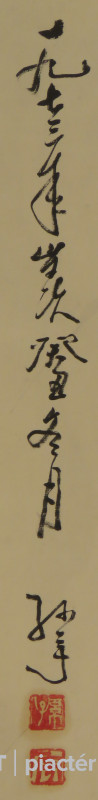 一九七三年岁次癸丑冬月
piactér